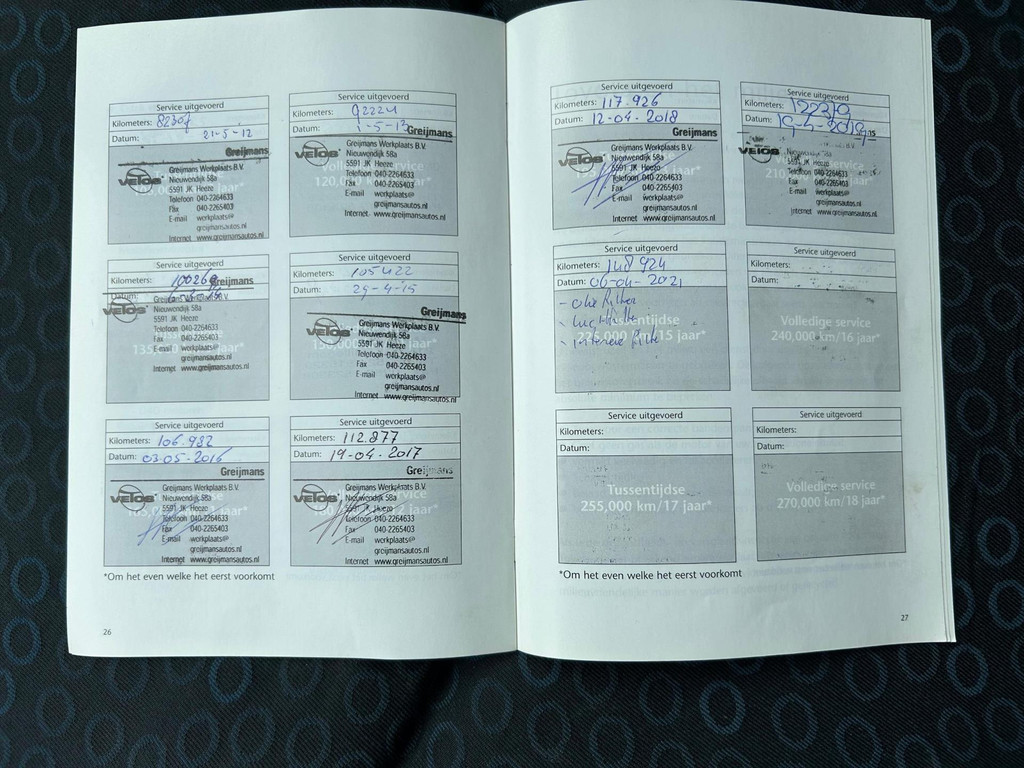 Service uitgevoerd
Kilometers:
Datum: 21-5-12
Greijmans
VELOS Greijmans Werkplaats B.V.
Nieuwendijk 58a
5591 JK Heeze
Telefoon 040-2264633
Fax 040-2265403
E-mail werkplaats@
greijmansautos.nl
Internet www.greijmansautos.nl
Service uitgevoerd
Kilometers:
Datum: 1-5-13
Greijmans
VELOS Greijmans Werkplaats B.V.
Nieuwendijk 58a
5591 JK Heeze
Telefoon 040-2264633
Fax 040-2265403
E-mail werkplaats@
greijmansautos.nl
Internet www.greijmansautos.nl
Service uitgevoerd
Kilometers:
Datum:
Greijmans
VELOS Greijmans Werkplaats B.V.
Nieuwendijk 58a
5591 JK Heeze
Telefoon 040-2264633
Fax 040-2265403
E-mail werkplaats@
greijmansautos.nl
Internet www.greijmansautos.nl
Service uitgevoerd
Kilometers: 105422
Datum: 29-4-15
Greijmans
VELOS Greijmans Werkplaats B.V.
Nieuwendijk 58a
5591 JK Heeze
Telefoon 040-2264633
Fax 040-2265403
E-mail werkplaats@
greijmansautos.nl
Internet www.greijmansautos.nl
Service uitgevoerd
Kilometers: 106.982
Datum: 03-05-2016
Greijmans
VELOS Greijmans Werkplaats B.V.
Nieuwendijk 58a
5591 JK Heeze
Telefoon 040-2264633
Fax 040-2265403
E-mail werkplaats@
greijmansautos.nl
Internet www.greijmansautos.nl
Service uitgevoerd
Kilometers: 112.877
Datum: 19-04-2017
Greijmans
VELOS Greijmans Werkplaats B.V.
Nieuwendijk 58a
5591 JK Heeze
Telefoon 040-2264633
Fax 040-2265403
E-mail werkplaats@
greijmansautos.nl
Internet www.greijmansautos.nl
*Om het even welke het eerst voorkomt
26
Service uitgevoerd
Kilometers: 117.926
Datum: 12-04-2018
Greijmans
VELOS Greijmans Werkplaats B.V.
Nieuwendijk 58a
5591 JK Heeze
Telefoon 040-2264633
Fax 040-2265403
E-mail werkplaats@
greijmansautos.nl
Internet www.greijmansautos.nl
Service uitgevoerd
Kilometers:
Datum:
VELOS
5591 JK Heeze
Telefoon 040-2264633
Fax 040-2265403
E-mail werkplaats@
greijmansautos.nl
Internet www.greijmansautos.nl
Service uitgevoerd
Kilometers: 148924
Datum: 06-04-2021
- olie filter
- interieur filter
Service uitgevoerd
Kilometers:
Datum:
Volledige service
240,000 km/16 jaar*
Service uitgevoerd
Kilometers:
Datum:
Tussentijdse
255,000 km/17 jaar*
Service uitgevoerd
Kilometers:
Datum:
Volledige service
270,000 km/18 jaar*
*Om het even welke het eerst voorkomt
27